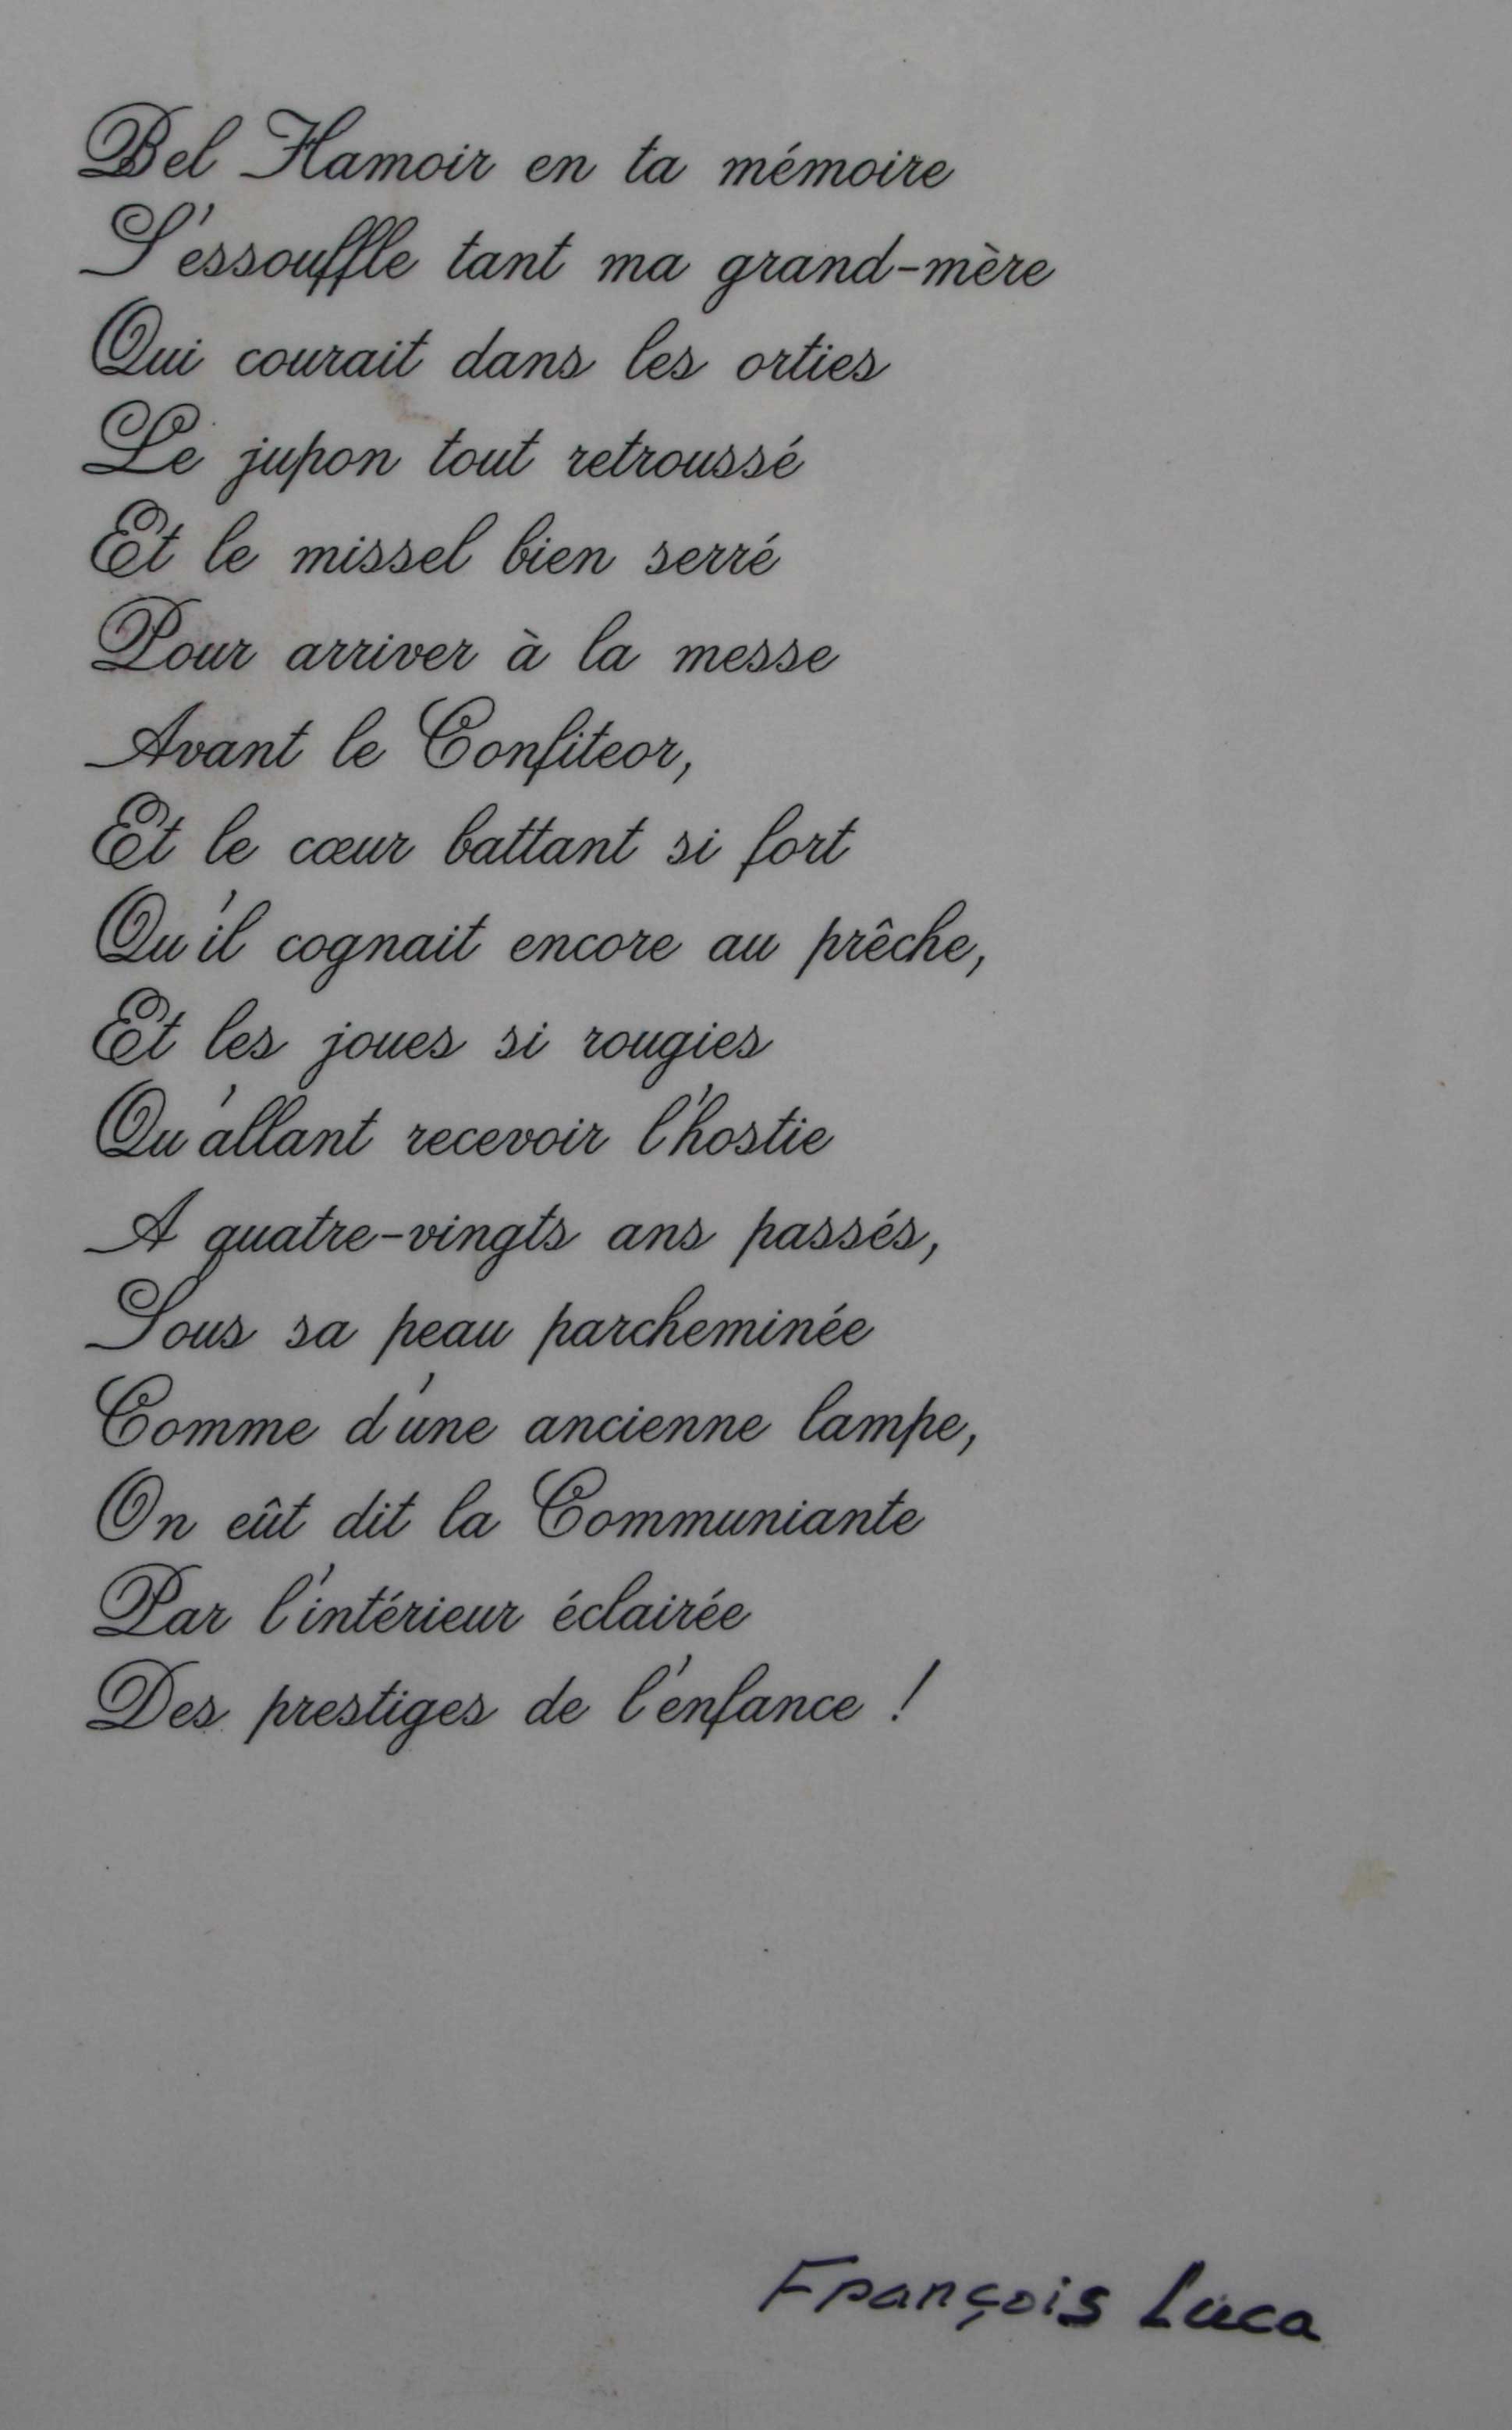 Bel Hamoir en ta mémoire
S'essouffle tant ma grand-mère
Qui courait dans les orties
Le jupon tout retroussé
Et le missel bien serré
Pour arriver à la messe
Avant le Confiteor,
Et le cœur battant si fort
Qu'il cognait encore au prêche,
Et les joues si rougies
Qu'allant recevoir l'hostie
A quatre-vingts ans passés,
Sous sa peau parcheminée
Comme d'une ancienne lampe,
On eût dit la Communiante
Par l'intérieur éclairée
Des prestiges de l'enfance !
François Luca